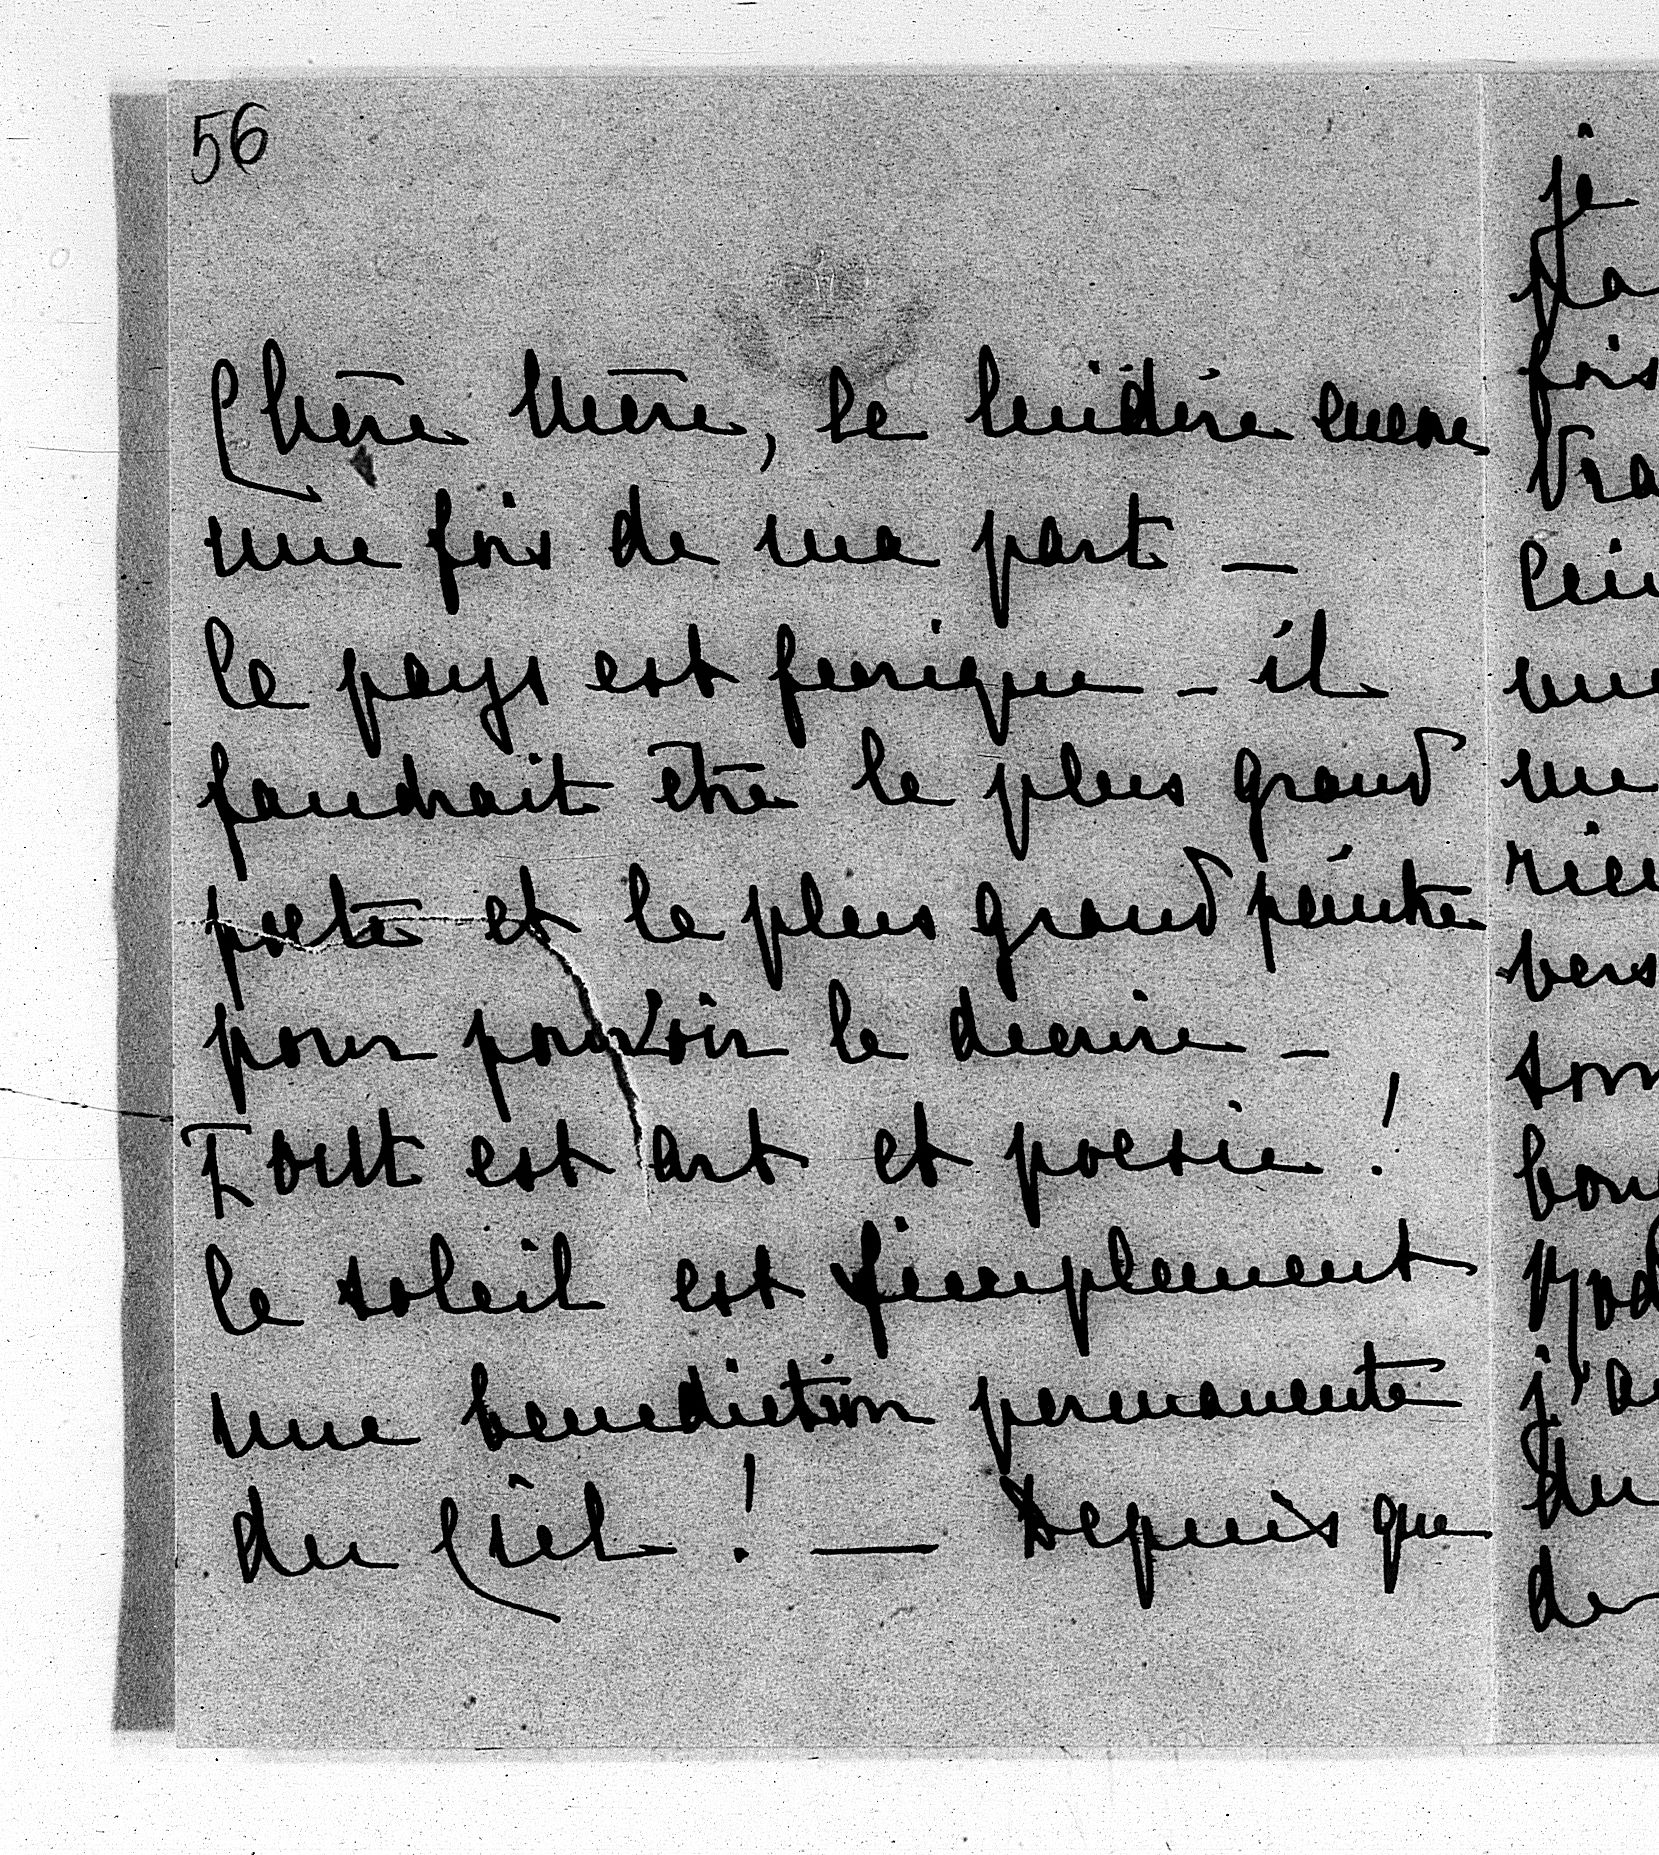 56
Chère Mère, le
une fois de ma part —
le pays est feerique - il
faudrait être le plus grand
poète et le plus grand peintre
pour pouvoir le decrire —
Tout est art et poesie !
le soleil est simplement
une benediction permanente
du Ciel ! — Depuis que
je
fois